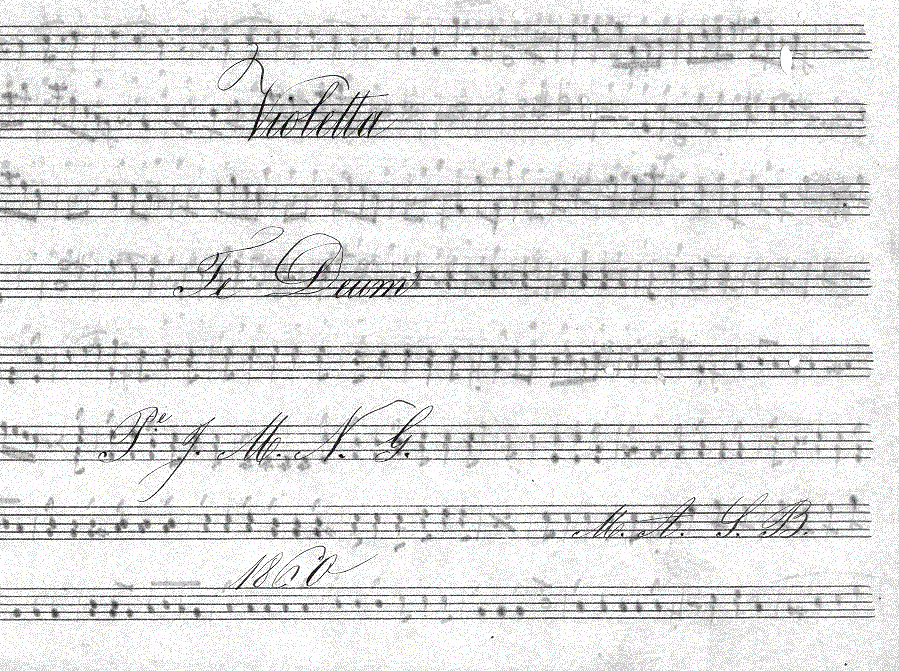 Violetta
Te Deum
Pe J. M. N. G.
M. A. S. B.
1860